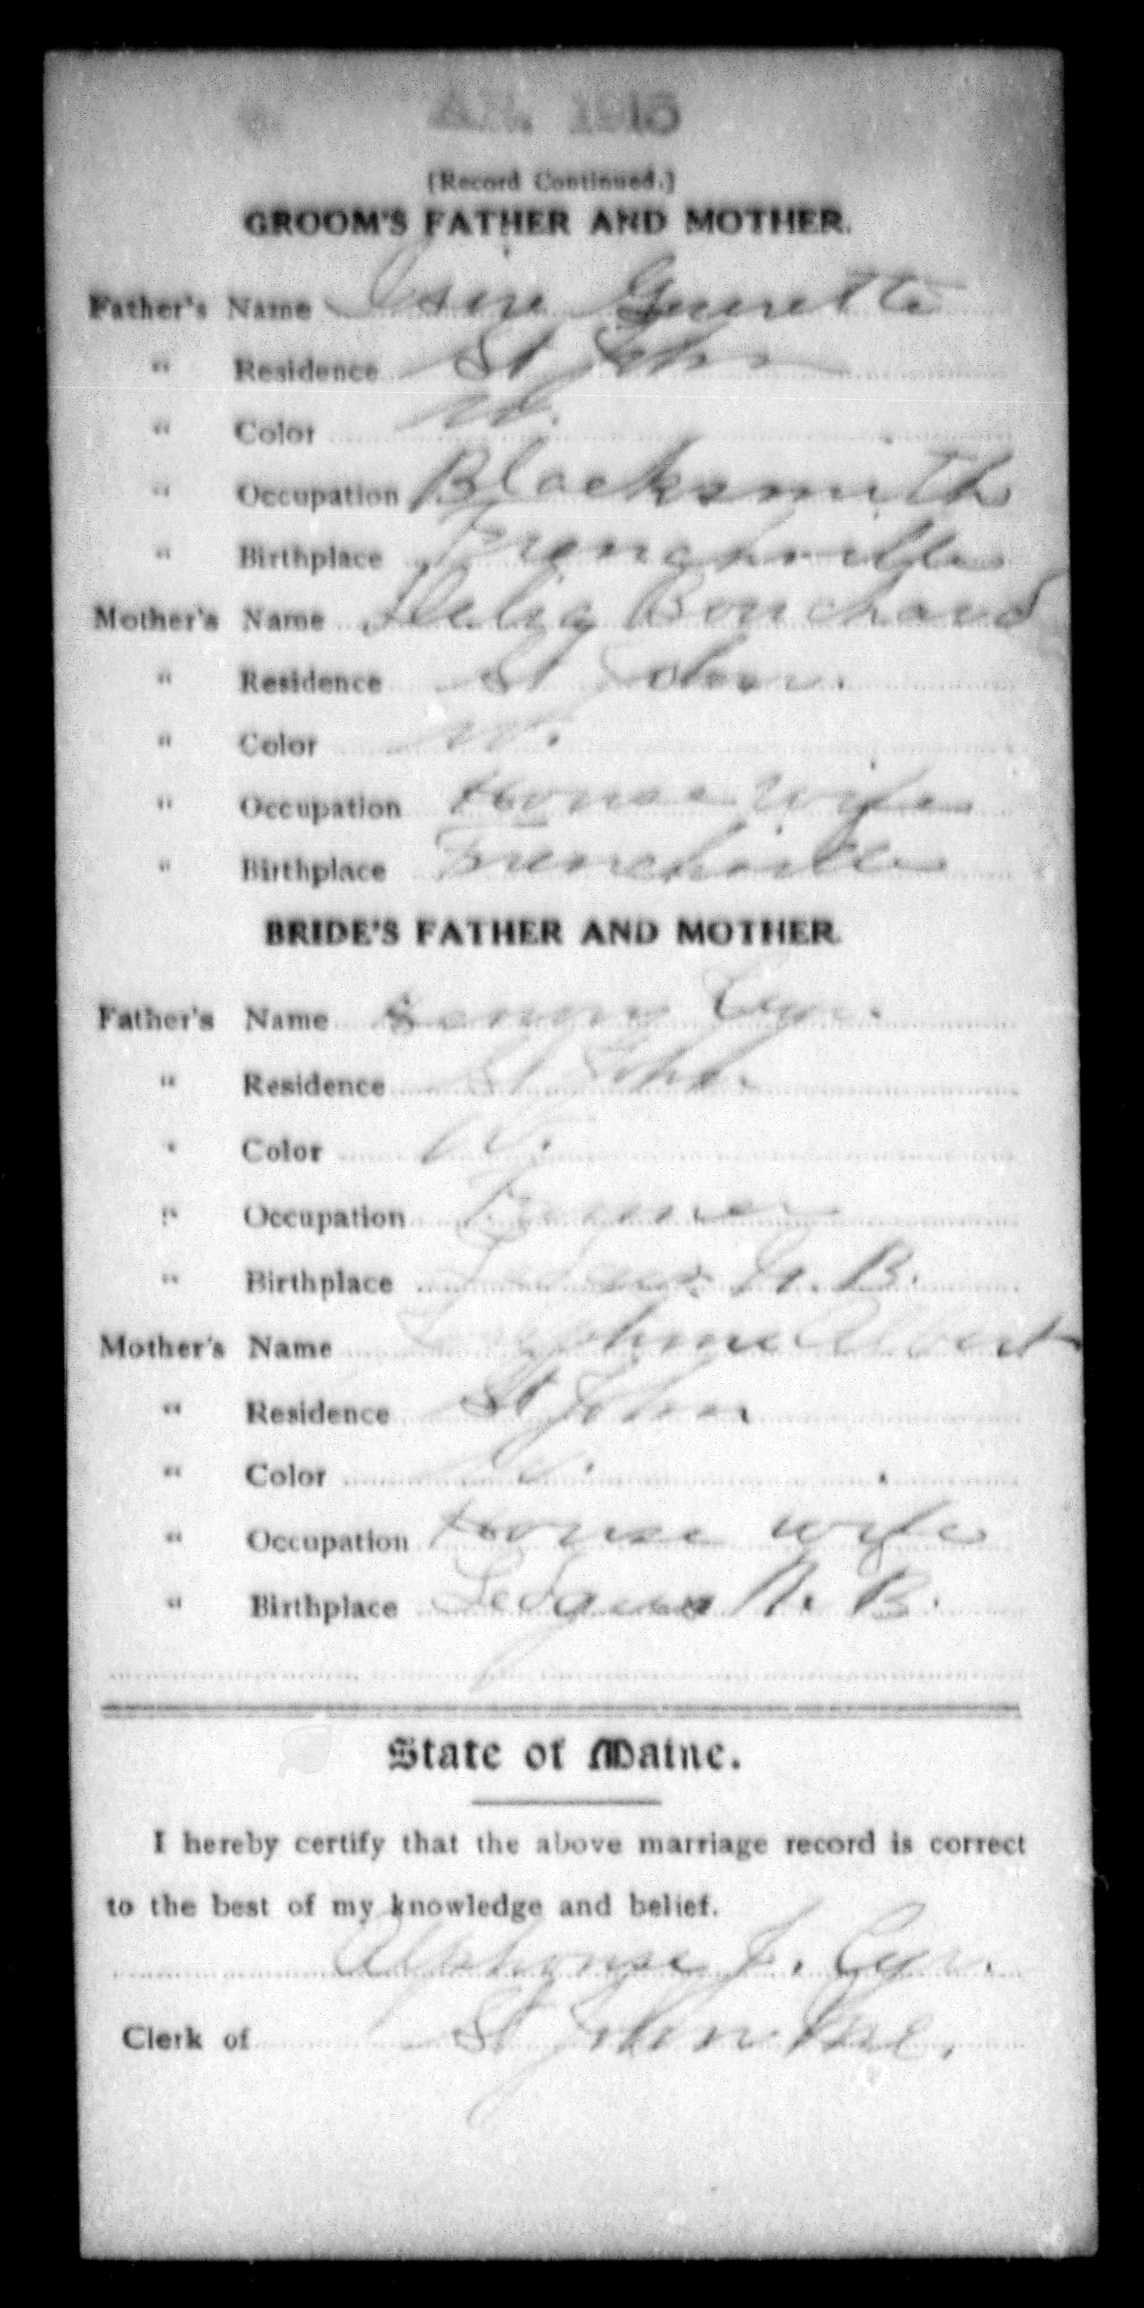 1915
(Record Continued.)
GROOM'S FATHER AND MOTHER.
Father's Name Guerette
" Residence St John
" Color W.
" Occupation Blacksmith
" Birthplace Frenchville
Mother's Name Delia Bouchard
" Residence St John.
" Color W.
" Occupation House wife
" Birthplace Frenchville
BRIDE'S FATHER AND MOTHER.
Father's Name Cyr.
" Residence St John.
" Color W.
" Occupation Farmer
" Birthplace N. B.
Mother's Name Josephine Albert
" Residence St John
" Color W.
" Occupation House wife
" Birthplace N. B.
State of Maine.
I hereby certify that the above marriage record is correct
to the best of my knowledge and belief.
Alphonse J. Cyr.
Clerk of St John Me.